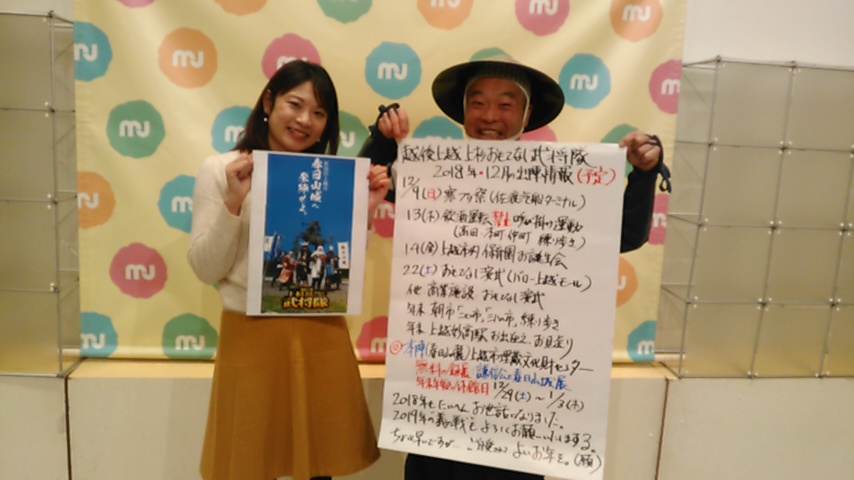 春日山城へ
参陣せよ。
越後上越上杉おもてなし武将隊
2018年・12月の出陣情報(予定)
12/9(日)寒ブリ祭(佐渡汽船ターミナル)
13(木)飲酒運転 呼び掛け運動
(高田 本町 仲町 練り歩き)
14(金)上越市内 保育園お誕生会
22(土)おもてなし演武(バロー上越モール)
他 商業施設 おもてなし演武
年末 朝市 練り歩き
年末 上越妙高駅 お出迎え、お見送り
本陣(春日山の麓)上越市埋蔵文化財センター
無料の 展 謙信公と春日山城展
年末年始の休館日 12/29(土)〜1/3(木)
2018年もたいへんお世話になりました。
2019年の義の戦もよろしくお願いいたしまする。
ちょと早いですが… よいお年を。(願)
mu
mu
mu
mu
mu
mu
mu
mu